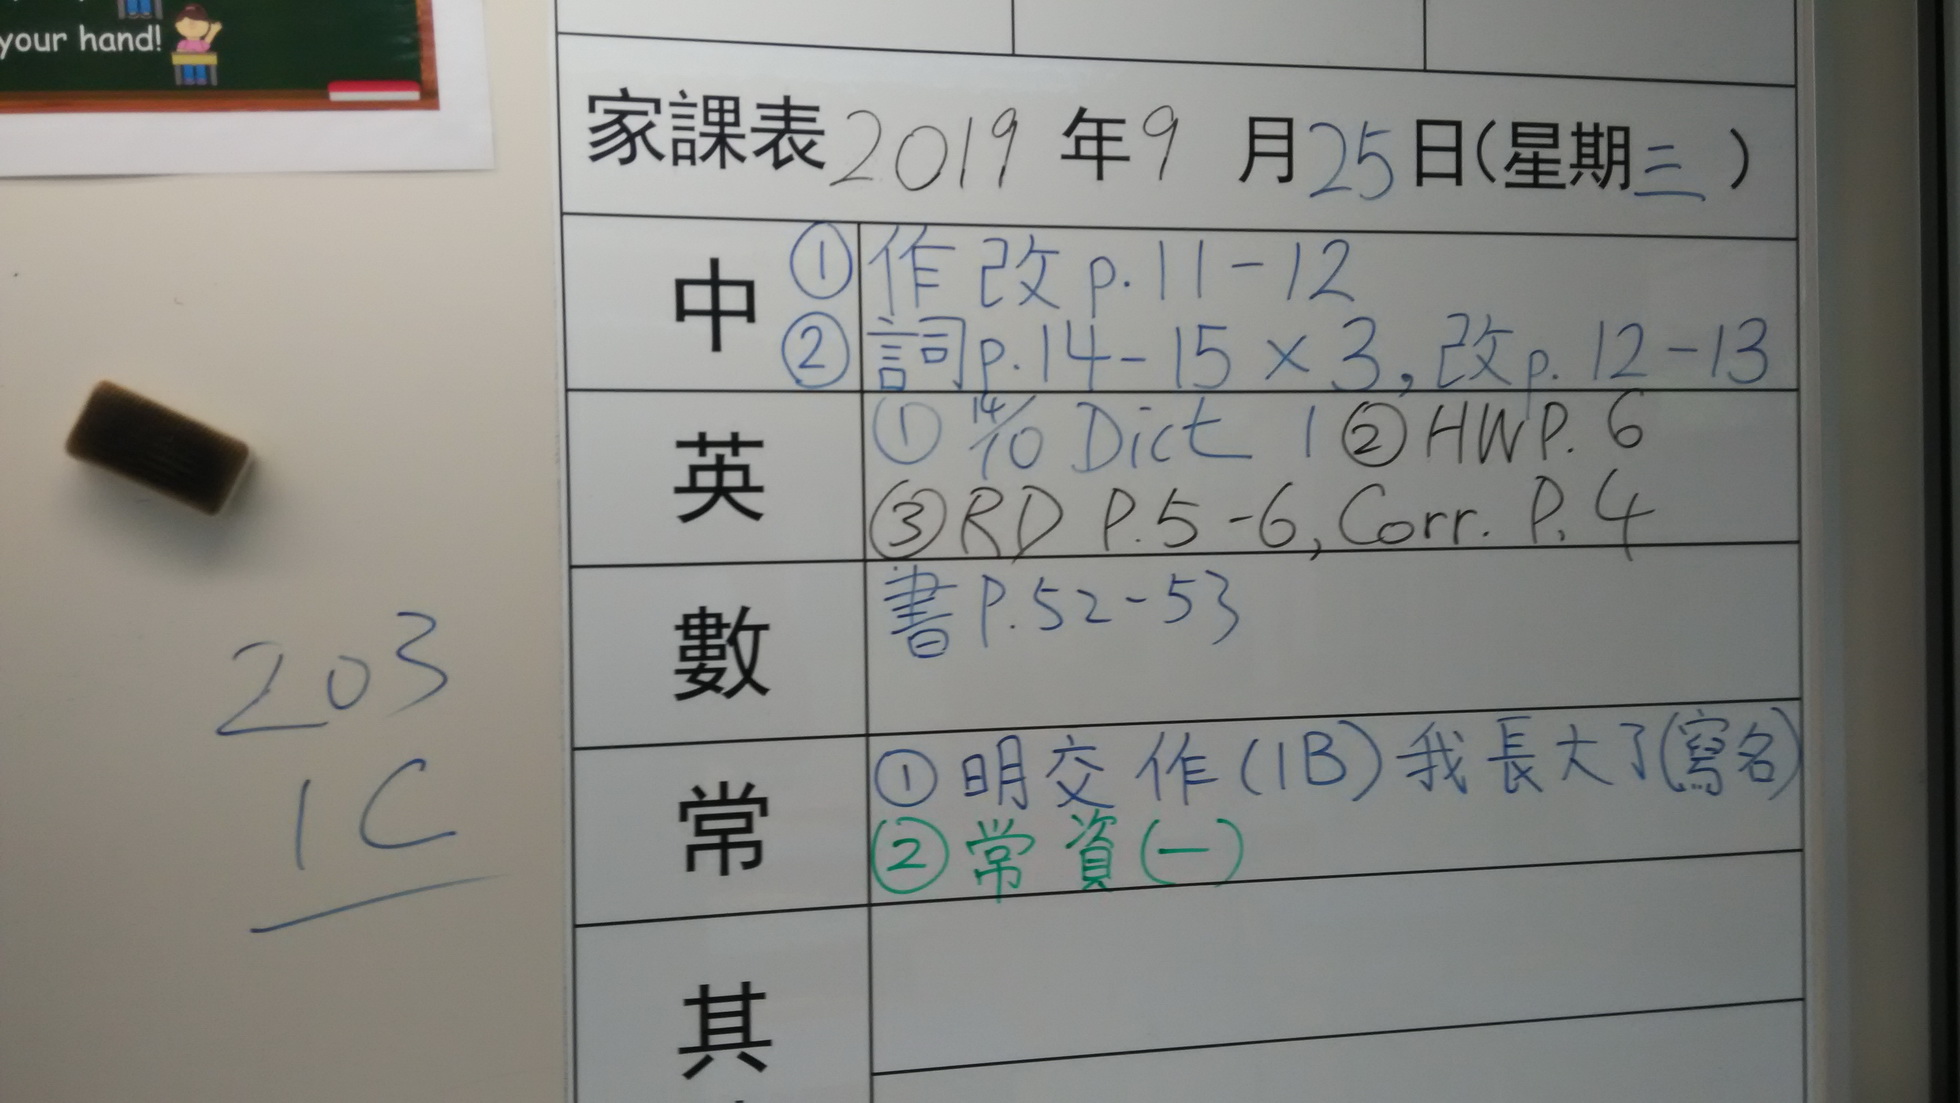 your hand!
家課表2019年9月25日(星期三)
中
①作改p.11-12
②詞p.14-15×3,改p.12-13
英
①14/10 Dict 1 ②HW P.6
③RD P.5-6, Corr. P.4
數
書P.52-53
常
①明交作(1B)我長大了(寫名)
②常資(一)
其
203
1C